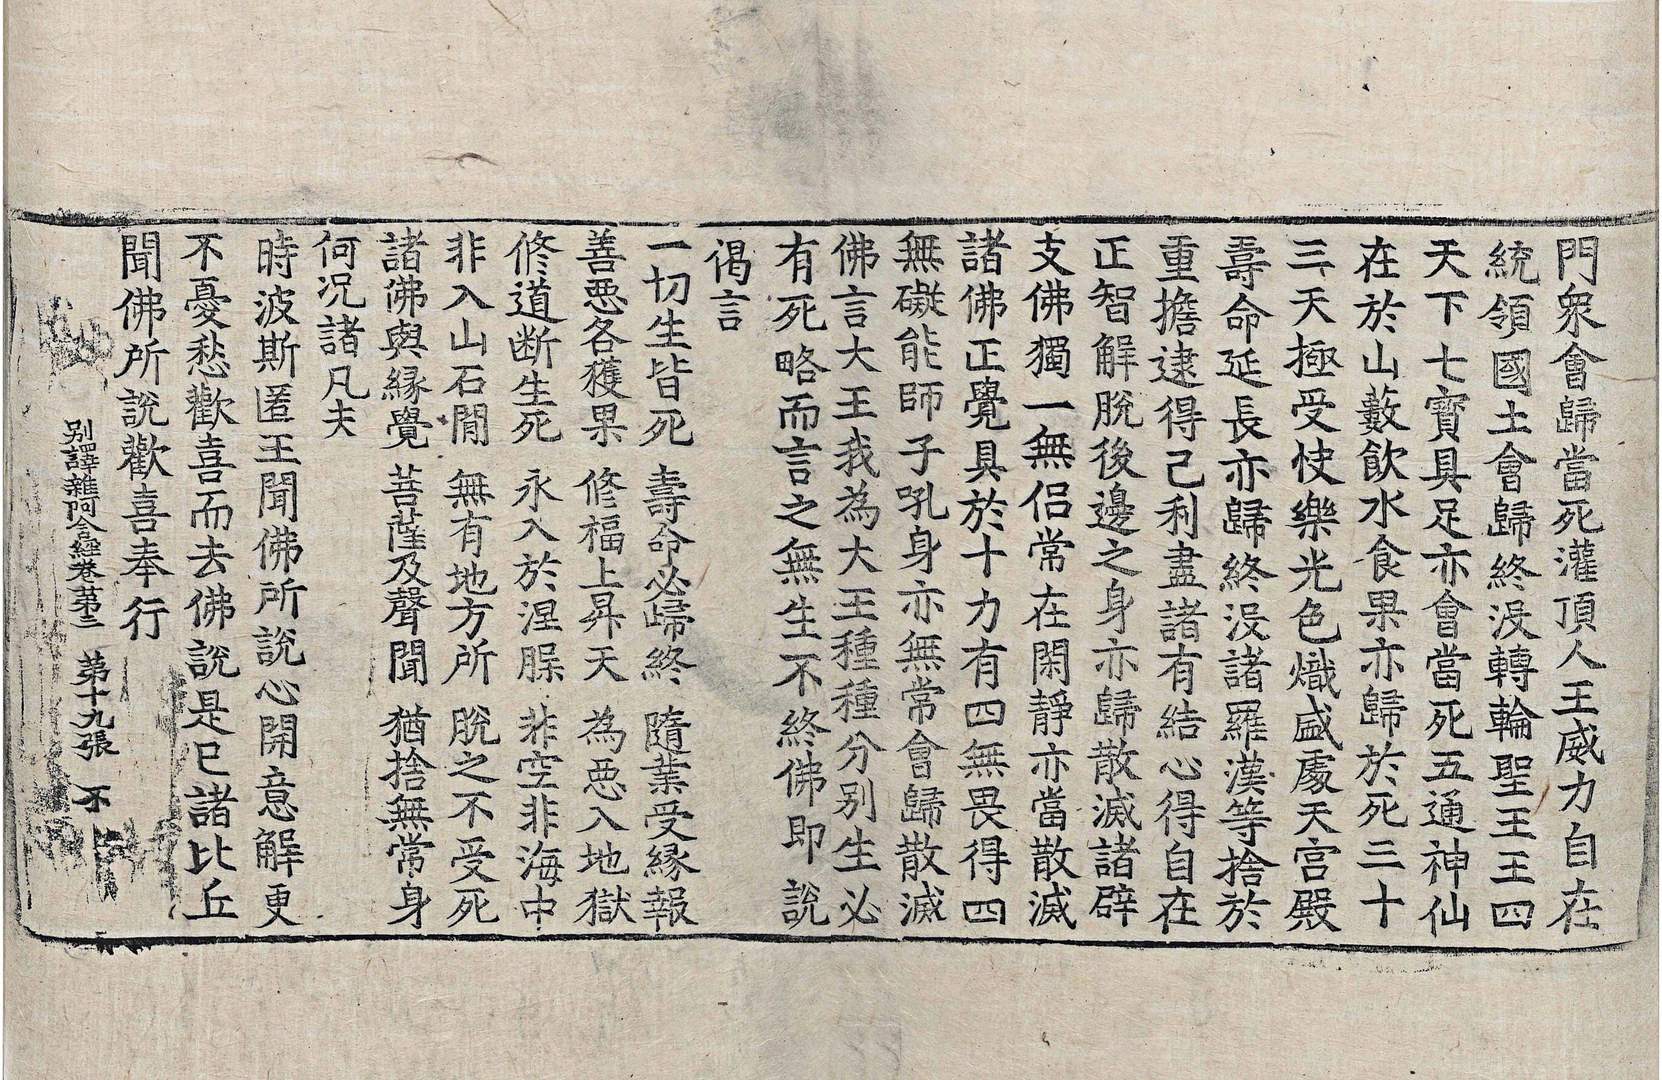 門衆會歸當死灌頂人王威力自在
統領國土會歸終没轉輪聖王王四
天下七寳具足亦會當死五通神仙
在於山藪飮水食果亦歸於死三十
三天極受快樂光色熾盛處天宫殿
壽命延長亦歸終没諸羅漢等捨於
重擔逮得己利盡諸有結心得自在
正智解脫後邊之身亦歸散滅諸辟
支佛獨一無侣常在閑靜亦當散滅
諸佛正覺具於十力有四無畏得四
無礙能師子吼身亦無常會歸散滅
佛言大王我為大王種種分別生必
有死略而言之無生不終佛即說
偈言
一切生皆死　壽命必歸終　隨業受緣報
善惡各獲果　修福上昇天　為惡入地獄
修道断生死　永入於涅䏶　非空非海中
非入山石閒　無有地方所　脫之不受死
諸佛與緣覺　菩薩及聲聞　猶捨無常身
何况諸凡夫
時波斯匿王聞佛所說心開意解更
不憂愁歡喜而去佛說是已諸比丘
聞佛所說歡喜奉行
別譯雜阿含經卷第三　第十九張　不